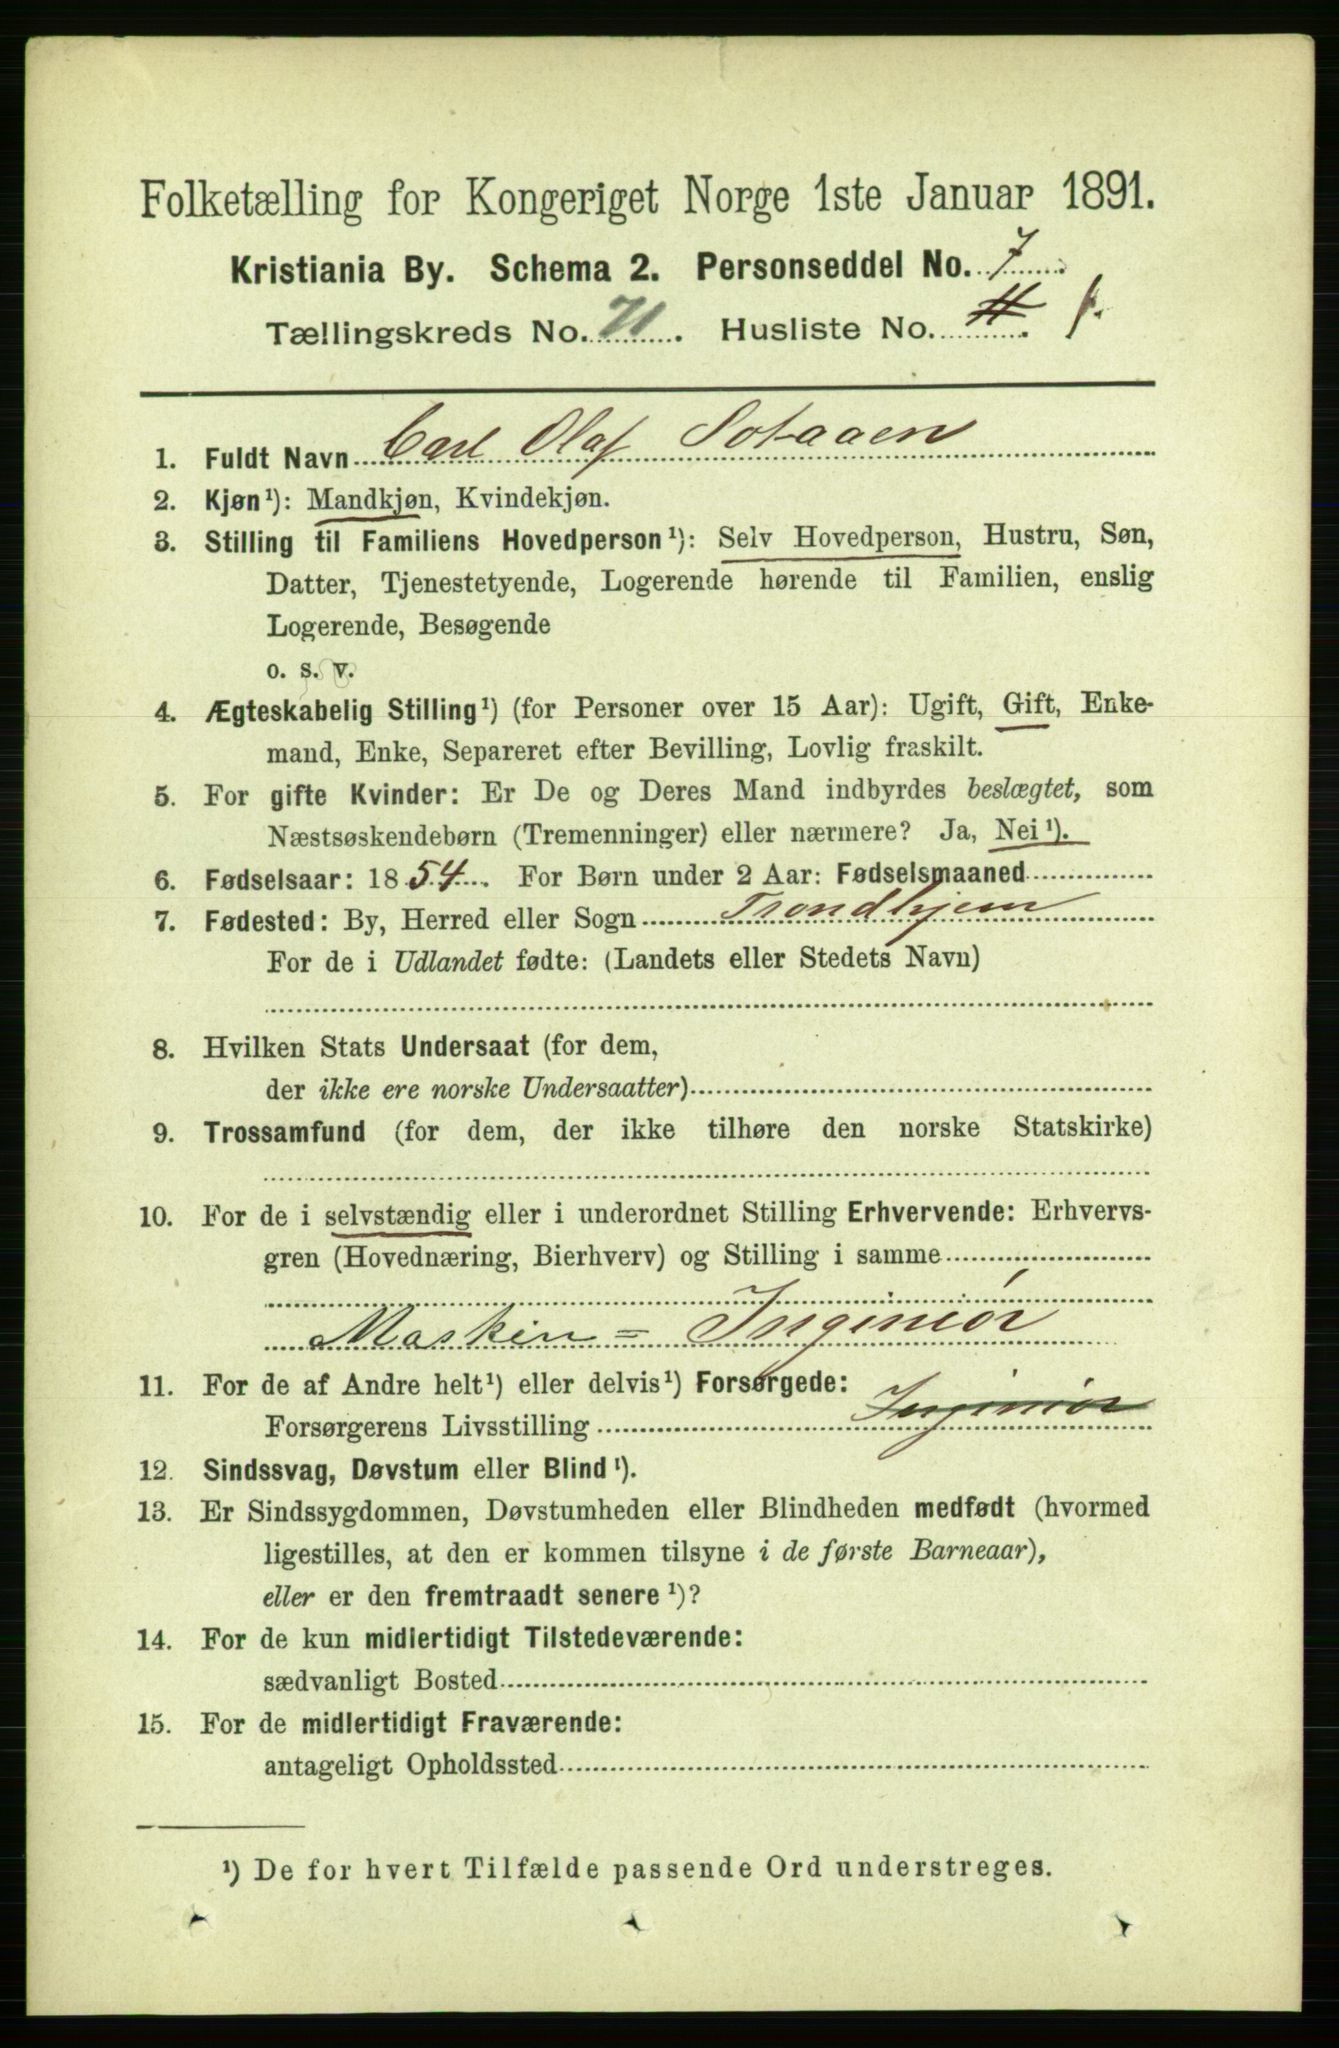 Folketælling for Kongeriget Norge 1ste Januar 1891.
Kristiania By. Schema 2. Personseddel No. 7
Tællingskreds No. 71. Husliste No. 1.
1. Fuldt Navn Carl Olaf Sotaaen
2. Kjøn¹): Mandkjøn, Kvindekjøn.
3. Stilling til Familiens Hovedperson¹): Selv Hovedperson, Hustru, Søn,
Datter, Tjenestetyende, Logerende hørende til Familien, enslig
Logerende, Besøgende
o. s. v.
4. Ægteskabelig Stilling¹) (for Personer over 15 Aar): Ugift, Gift, Enke-
mand, Enke, Separeret efter Bevilling, Lovlig fraskilt.
5. For gifte Kvinder: Er De og Deres Mand indbyrdes beslægtet, som
Næstsøskendebørn (Tremenninger) eller nærmere? Ja, Nei¹).
6. Fødselsaar: 1854. For Børn under 2 Aar: Fødselsmaaned
7. Fødested: By, Herred eller Sogn Trondhjem
For de i Udlandet fødte: (Landets eller Stedets Navn)
8. Hvilken Stats Undersaat (for dem,
der ikke ere norske Undersaatter)
9. Trossamfund (for dem, der ikke tilhøre den norske Statskirke)
10. For de i selvstændig eller i underordnet Stilling Erhvervende: Erhvervs-
gren (Hovednæring, Bierhverv) og Stilling i samme
Maskin=Ingeniør
11. For de af Andre helt¹) eller delvis¹) Forsørgede:
Forsørgerens Livsstilling Ingeniør
12. Sindssvag, Døvstum eller Blind¹).
13. Er Sindssygdommen, Døvstumheden eller Blindheden medfødt (hvormed
ligestilles, at den er kommen tilsyne i de første Barneaar),
eller er den fremtraadt senere¹)?
14. For de kun midlertidigt Tilstedeværende:
sædvanligt Bosted
15. For de midlertidigt Fraværende:
antageligt Opholdssted
¹) De for hvert Tilfælde passende Ord understreges.